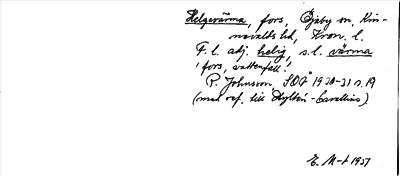 Helgevärma, fors, Öjaby sn, Kin-
nevalds hd, Kron. l.
F. l. adj. helig, s. l. värma
'fors, vattenfall'.
P. Johnsson, SOÅ 1930-31 s. 19
(med ref. till Hyltén-Cavallius)
E. M-t 1937